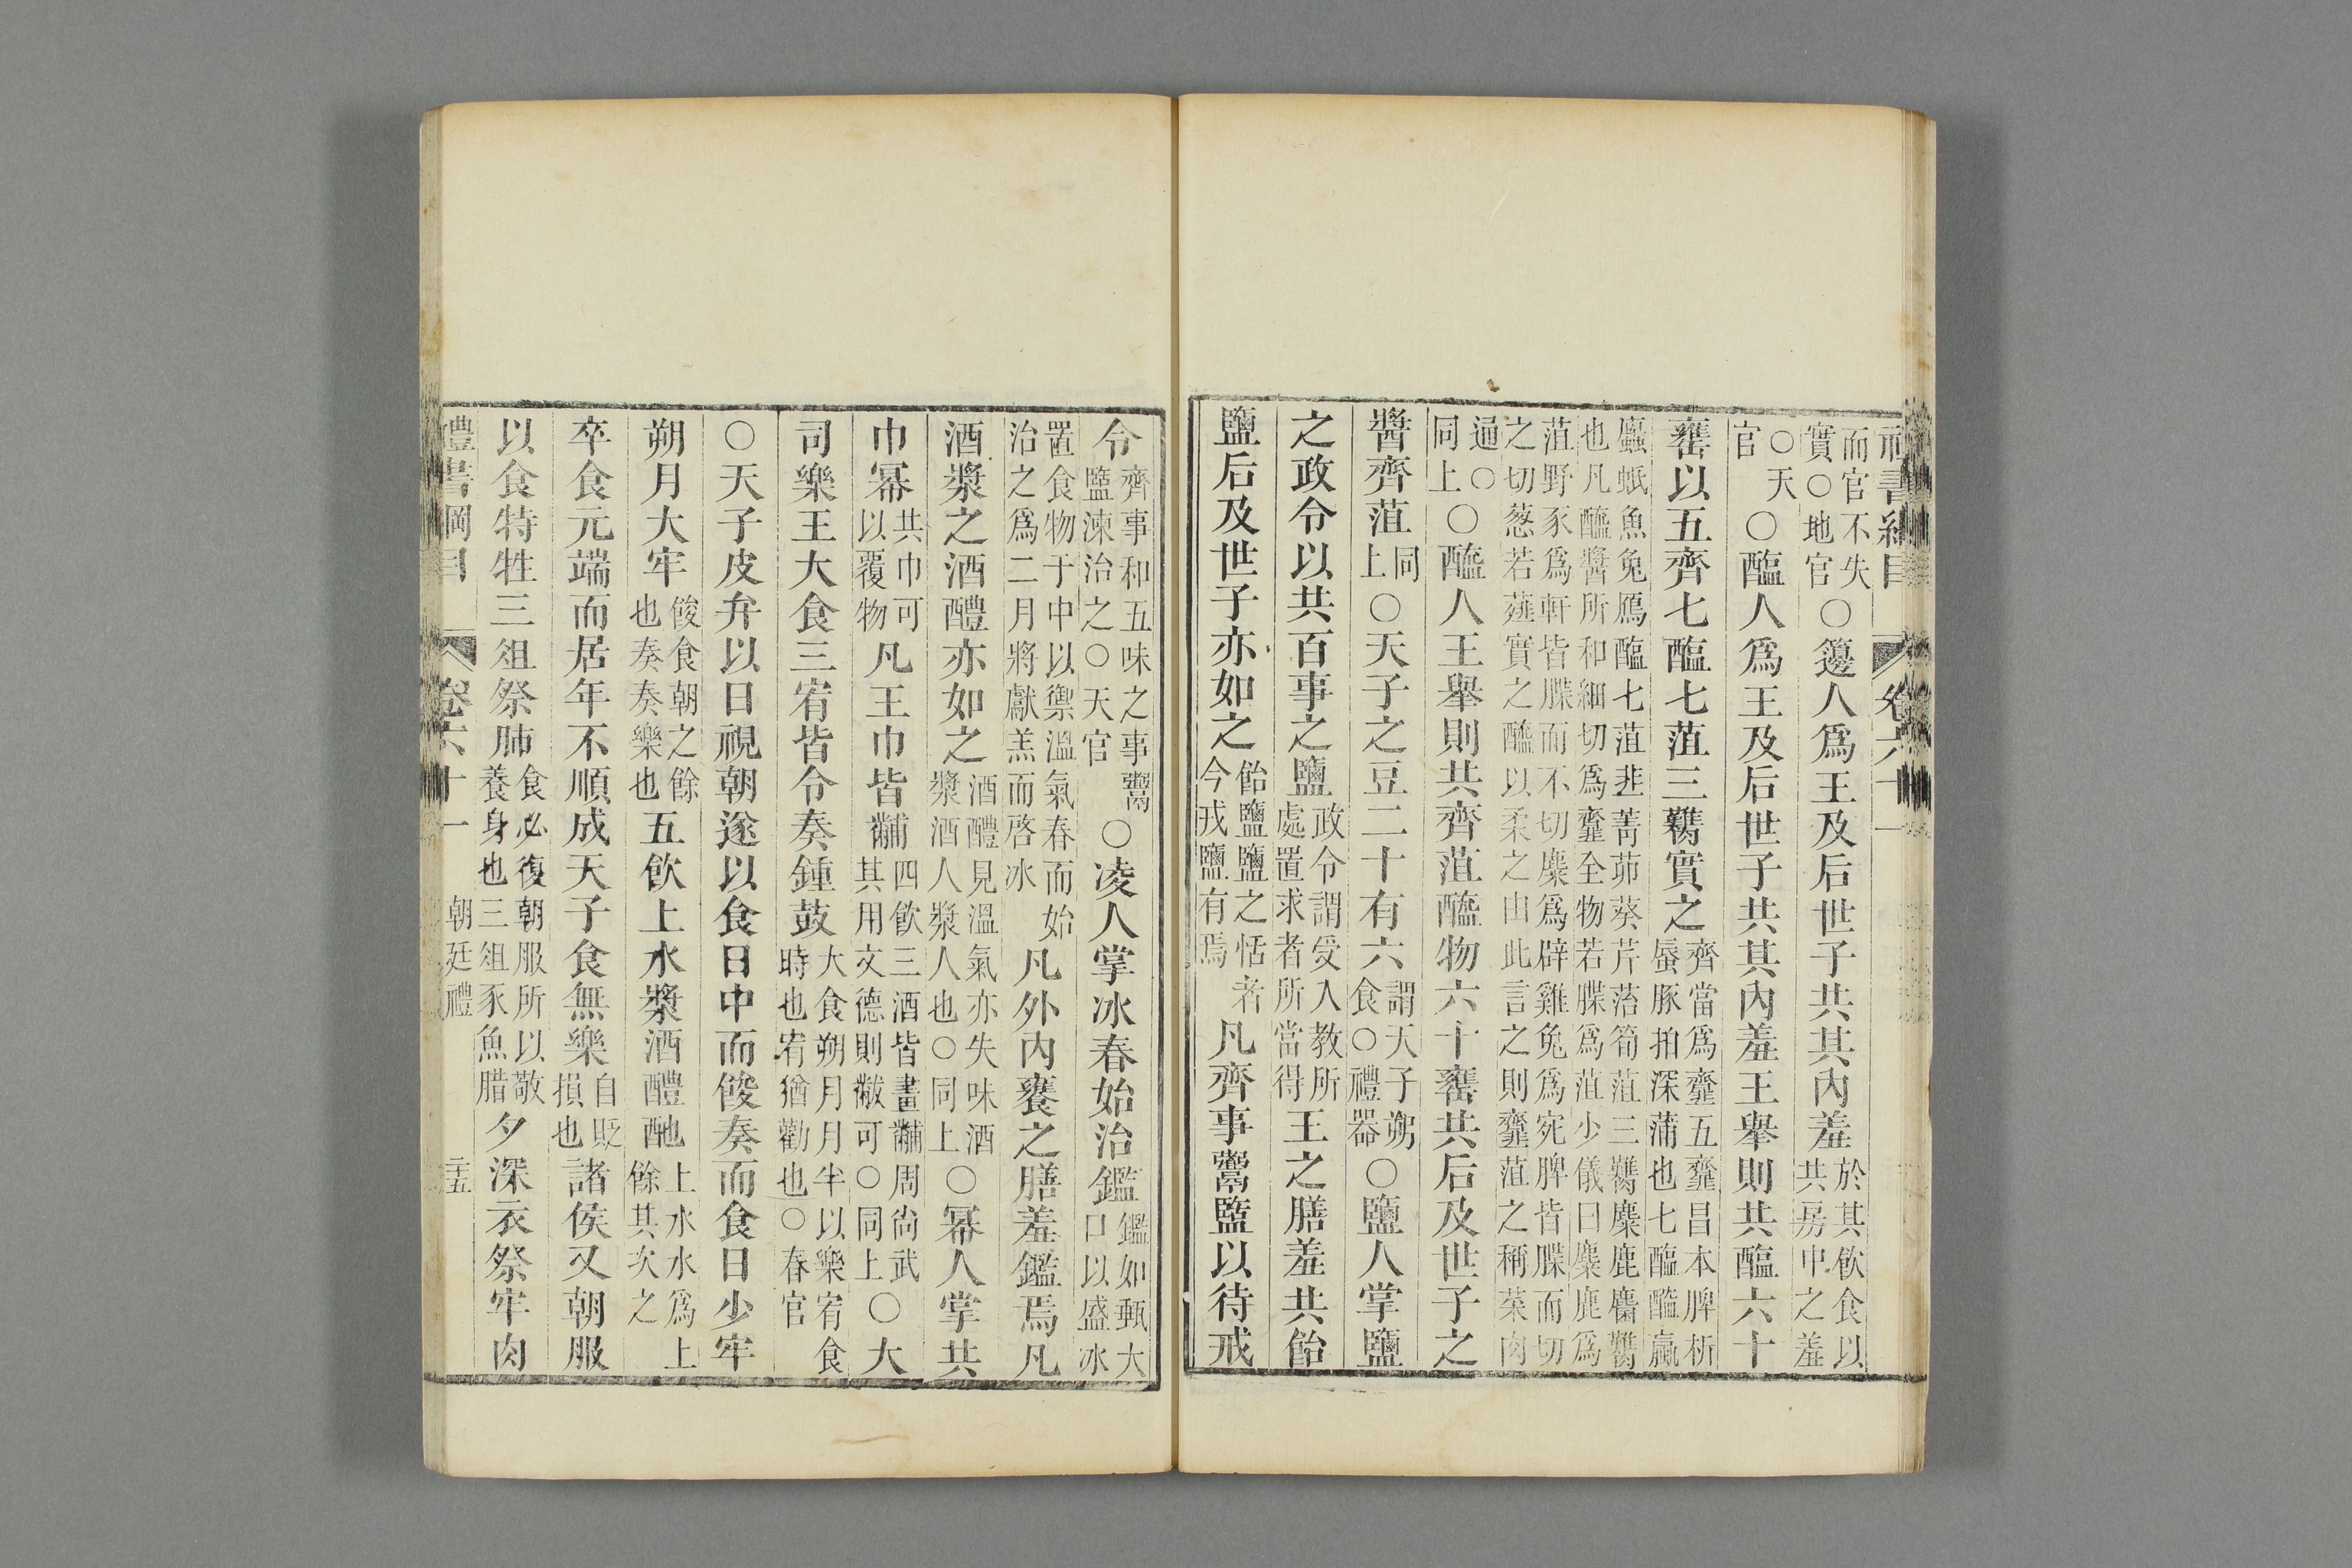 禮書綱目 卷六十一
而官不失
實○地官
○籩人爲王及后世子共其內羞
於其飲食以
共房中之羞
○天
官
○醢人爲王及后世子共其內羞王舉則共醢六十
罋以五齊七醢七菹三臡實之
齊當爲齏五齏昌本脾析
蜃豚拍深蒲也七醢醓蠃
蠯蚳魚兔鴈醢七菹韭菁茆葵芹箈筍菹三臡麋鹿麏臡
也凡醯醬所和細切爲齏全物若䐑爲菹少儀曰麋鹿爲
菹野豕爲軒皆䐑而不切麇爲辟雞兔爲宛脾皆䐑而切
之切葱若薤實之醯以柔之由此言之則齏菹之稱菜肉
通○
同上
○醯人王舉則共齊菹醯物六十罋共后及世子之
醬齊菹
同
上
○天子之豆二十有六
謂天子朔
食○禮器
○鹽人掌鹽
之政令以共百事之鹽
政令謂受入教所
處置求者所當得
王之膳羞共飴
鹽后及世子亦如之
飴鹽鹽之恬者
今戎鹽有焉
凡齊事鬻盬以待戒
令
齊事和五味之事鬻
盬湅治之○天官
○凌人掌冰春始治鑑
鑑如甀大
口以盛冰
置食物于中以禦溫氣春而始
治之爲二月將獻羔而啓冰
凡外內饔之膳羞鑑焉凡
酒漿之酒醴亦如之
酒醴見溫氣亦失味酒
漿酒人漿人也○同上
○冪人掌共
巾冪
共巾可
以覆物
凡王巾皆黼
四飲三酒皆畫黼周尚武
其用文德則黻可○同上
○大
司樂王大食三宥皆令奏鍾鼓
大食朔月月半以樂宥食
時也宥猶勸也○春官
○天子皮弁以日視朝遂以食日中而餕奏而食日少牢
朔月大牢
餕食朝之餘
也奏奏樂也
五飲上水漿酒醴酏
上水水爲上
餘其次之
卒食元端而居年不順成天子食無樂
自貶
損也
諸侯又朝服
以食特牲三俎祭肺
食必復朝服所以敬
養身也三俎豕魚腊
夕深衣祭牢肉
禮書綱目 卷六十一 朝廷禮 二十五